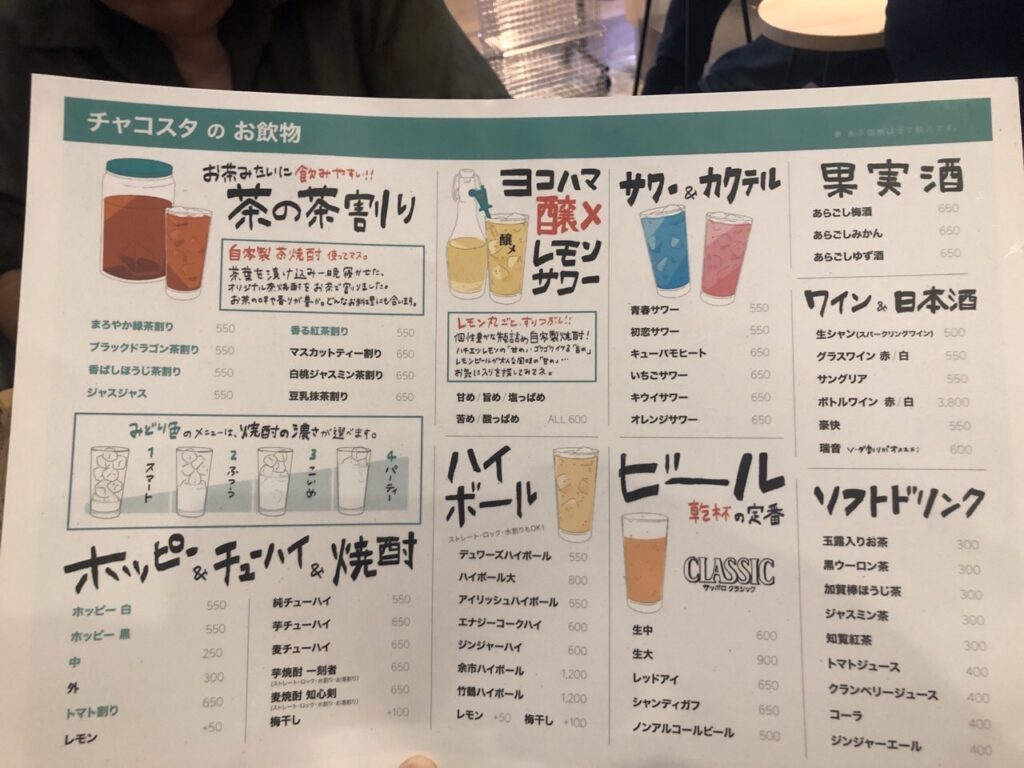 チャコスタ の お飲物
※ 表示価格は全て税込です。
お茶みたいに 飲みやすい!!
茶の茶割り
自家製 茶焼酎 使ってマス。
茶葉を漬け込み一晩寝かせた、
オリジナル茶焼酎をお茶で割りました。
お茶の味や香りが豊か。どんなお料理にも合います。
まろやか緑茶割り 550
ブラックドラゴン茶割り 550
香ばしほうじ茶割り 550
ジャスジャス 550
香る紅茶割り 550
マスカットティー割り 650
白桃ジャスミン茶割り 650
豆乳抹茶割り 650
みどり色のメニューは、焼酎の濃さが選べます。
1 スマート
2 ふつう
3 こいめ
4 パーティー
ホッピー&チューハイ&焼酎
ホッピー 白 550
ホッピー 黒 550
中 250
外 300
トマト割り 650
レモン +50
純チューハイ 550
芋チューハイ 650
麦チューハイ 650
芋焼酎 一刻者 650
(ストレート・ロック・水割り・お湯割り)
麦焼酎 知心剣 650
(ストレート・ロック・水割り・お湯割り)
梅干し +100
ヨコハマ
醸〆
レモン
サワー
醸〆
レモン丸ごと、すりつぶし!!
個性豊かな瓶詰め自家製焼酎!
お気に入りを探してみてネ。
甘め / 旨め / 塩っぱめ
苦め / 酸っぱめ ALL 600
ハイ
ボール
ストレート・ロック・水割りもOK!
デュワーズハイボール 550
ハイボール大 800
アイリッシュハイボール 550
エナジーコークハイ 600
ジンジャーハイ 600
余市ハイボール 1,200
竹鶴ハイボール 1,200
レモン +50 梅干し +100
サワー&カクテル
青春サワー 550
初恋サワー 550
キューバモヒート 650
いちごサワー 650
キウイサワー 650
オレンジサワー 650
ビール
乾杯の定番
CLASSIC
サッポロ クラシック
生中 600
生大 900
レッドアイ 650
シャンディガフ 650
ノンアルコールビール 500
果実酒
あらごし梅酒 650
あらごしみかん 650
あらごしゆず酒 650
ワイン&日本酒
生シャン(スパークリングワイン) 500
グラスワイン 赤 / 白 550
サングリア 550
ボトルワイン 赤 / 白 3,800
豪快 550
瑞音 ソーダ割りがオススメ! 600
ソフトドリンク
玉露入りお茶 300
黒ウーロン茶 300
加賀棒ほうじ茶 300
ジャスミン茶 300
知覧紅茶 300
トマトジュース 400
クランベリージュース 400
コーラ 400
ジンジャーエール 400